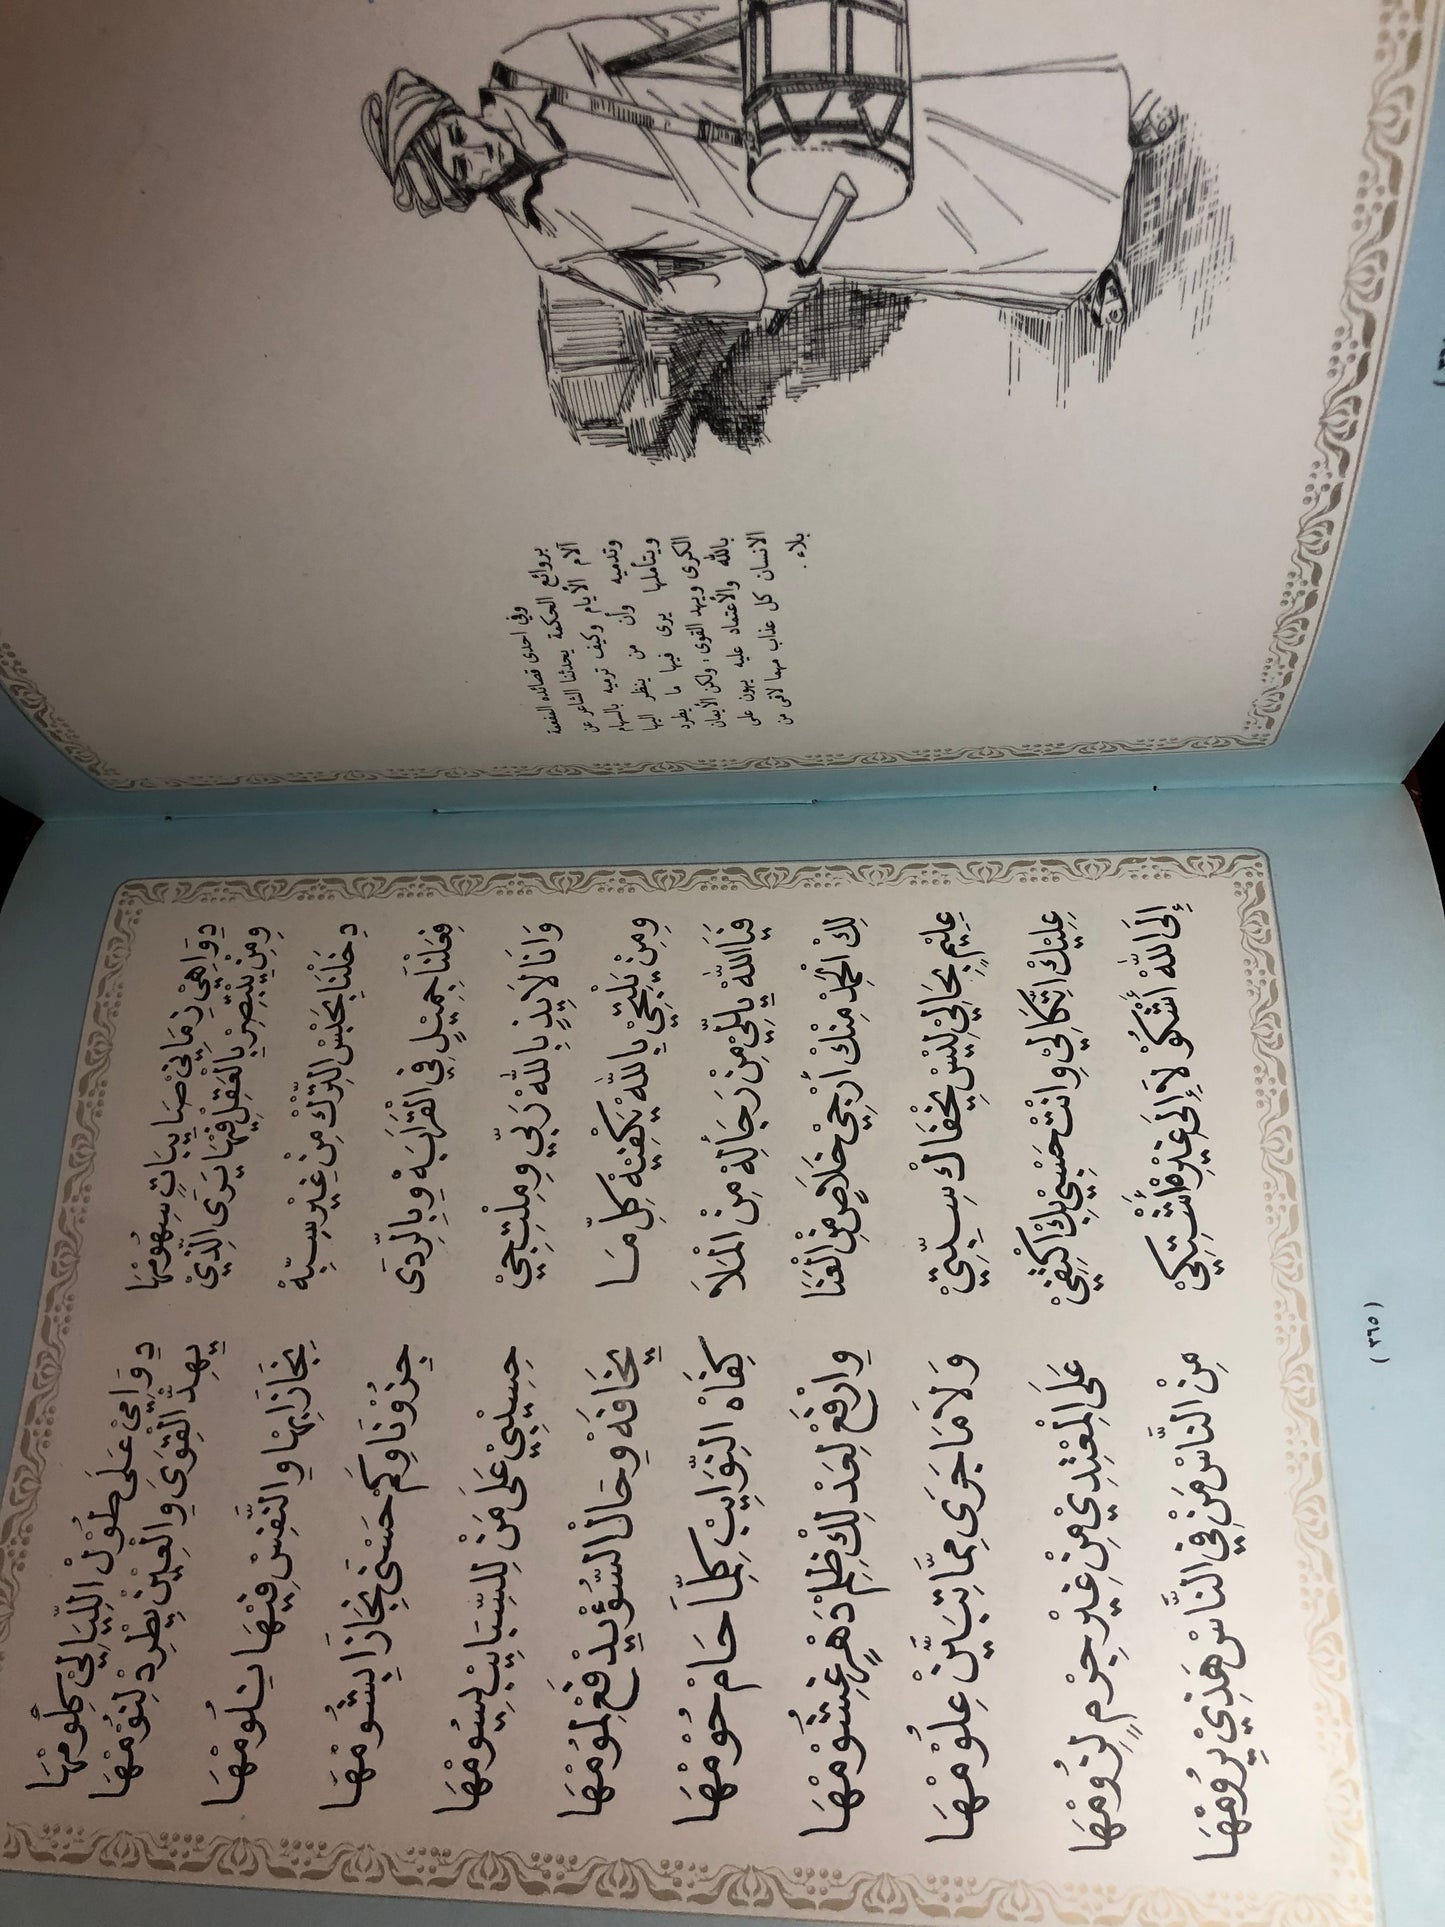 وفي احدى قصائده المفعمة
بروائع الحكمة يحدثنا الشاعر عن
آلام الأيام وكيف ترميه بالسهام
وتدميه وأن من ينظر اليها
ويتأملها يرى فيها ما يطرد
الكرى ويهد القوى ، ولكن الأيمان
بالله والأعتماد عليه يهون على
الانسان كل عذاب مهما لاقى من
بلاء .
دِوَاهِيْ زِمَانِيْ صَايِبَاتٍ سِهُومْهَا دِوَامِيْ عَلَى طُوْلْ اللِّيَالِيْ كِلُومْهَا
وِمِنْ يِنْتِصِرْ بِالْعَقِلْ فِيْهَا يَرَى الِّذِيْ يِهِدّ الْقِوَى وِالْعِيْنْ يِطْرِدْ لِنُوْمْهَا
دِخَلْنَا بِحَبْسْ التِّرْكْ مِنْ غِيْرْ سِبِّهْ نِجَازَا بِهَا وِالنَّفِسْ فِيْهَا يِنلُومْهَا
فِعَلْنَا جَمِيْلٍ فِي الْقَرَابَهْ وْبِالرِّدَى جِزُوْنَا وِكَمْ حَسْنَى نِجَازَا بِشُومْهَا
وَانَا لاَيِذٍ بِاللهْ رَبِّيْ وِمِلْتِجِيْ حِسِيْبِيْ عَلَى مَنْ لِلسِّبَايِبْ يِسُومْهَا
وِمِنْ يَلْتِجِيْ بِاللهْ يَكْفِيْهْ كِلّ مَا يْخَافَهْ وْحَالْ السُّوْ يِدْفَعْ لِمُومْهَا
فَيَا اللهْ يَاللِّيْ مِنْ رَجَا لِهْ مِنْ الْمَلاَ كِفَاهْ النِّوَايِبْ كِلِّمَا حَامْ حُوْمْهَا
لِكْ الْحَمِدْ مِنْكْ أرْجِيْ خَلاَصٍ مِنْ الْعَنَا وِارْفَعْ لِعَدْلِكْ ظِلِمْ دَهْرٍ غِشُوْمْهَا
عِلِيْمٍ بِحَالِيْ لِيْسْ يِخْفَاكْ سِيِّتِيْ وَلاَ مَا جَرَى مِمَّا تِبَيَّنْ عِلُوْمْهَا
عِلِيْكْ اتِّكَالِيْ وِانْتْ حَسْبِيْ بِكْ اكْتِفِيْ عَلَى الِمْعْتِدِيْ مِنْ غِيْرْ جِرْمٍ لِزُومْهَا
إِلَى اللهْ أَشْكُوْ لاَ إِلَى غَيْرِهْ أَشْتِكِيْ مِنْ النَّاسْ مَنْ فِي النَّاسْ هَذِيْ يِرُومْهَا
( ٣٦٥ )